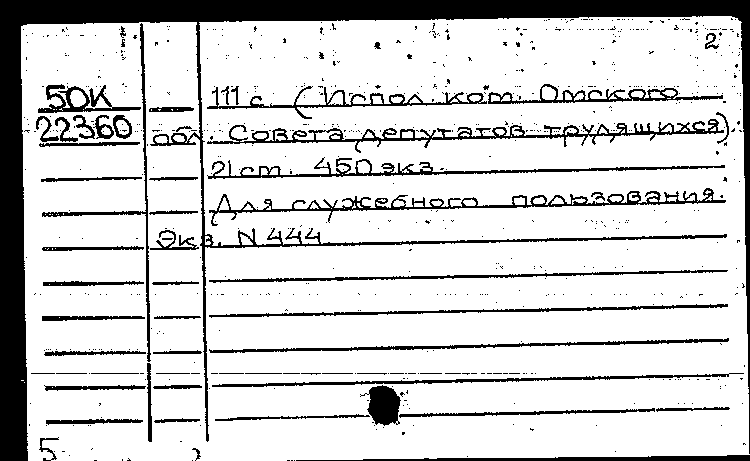 2
50К 111 с. (Испол. ком. Омского
22360 обл. Совета депутатов трудящихся).
21 ст. 450 экз.
Для служебного пользования.
Экз. N 444
5